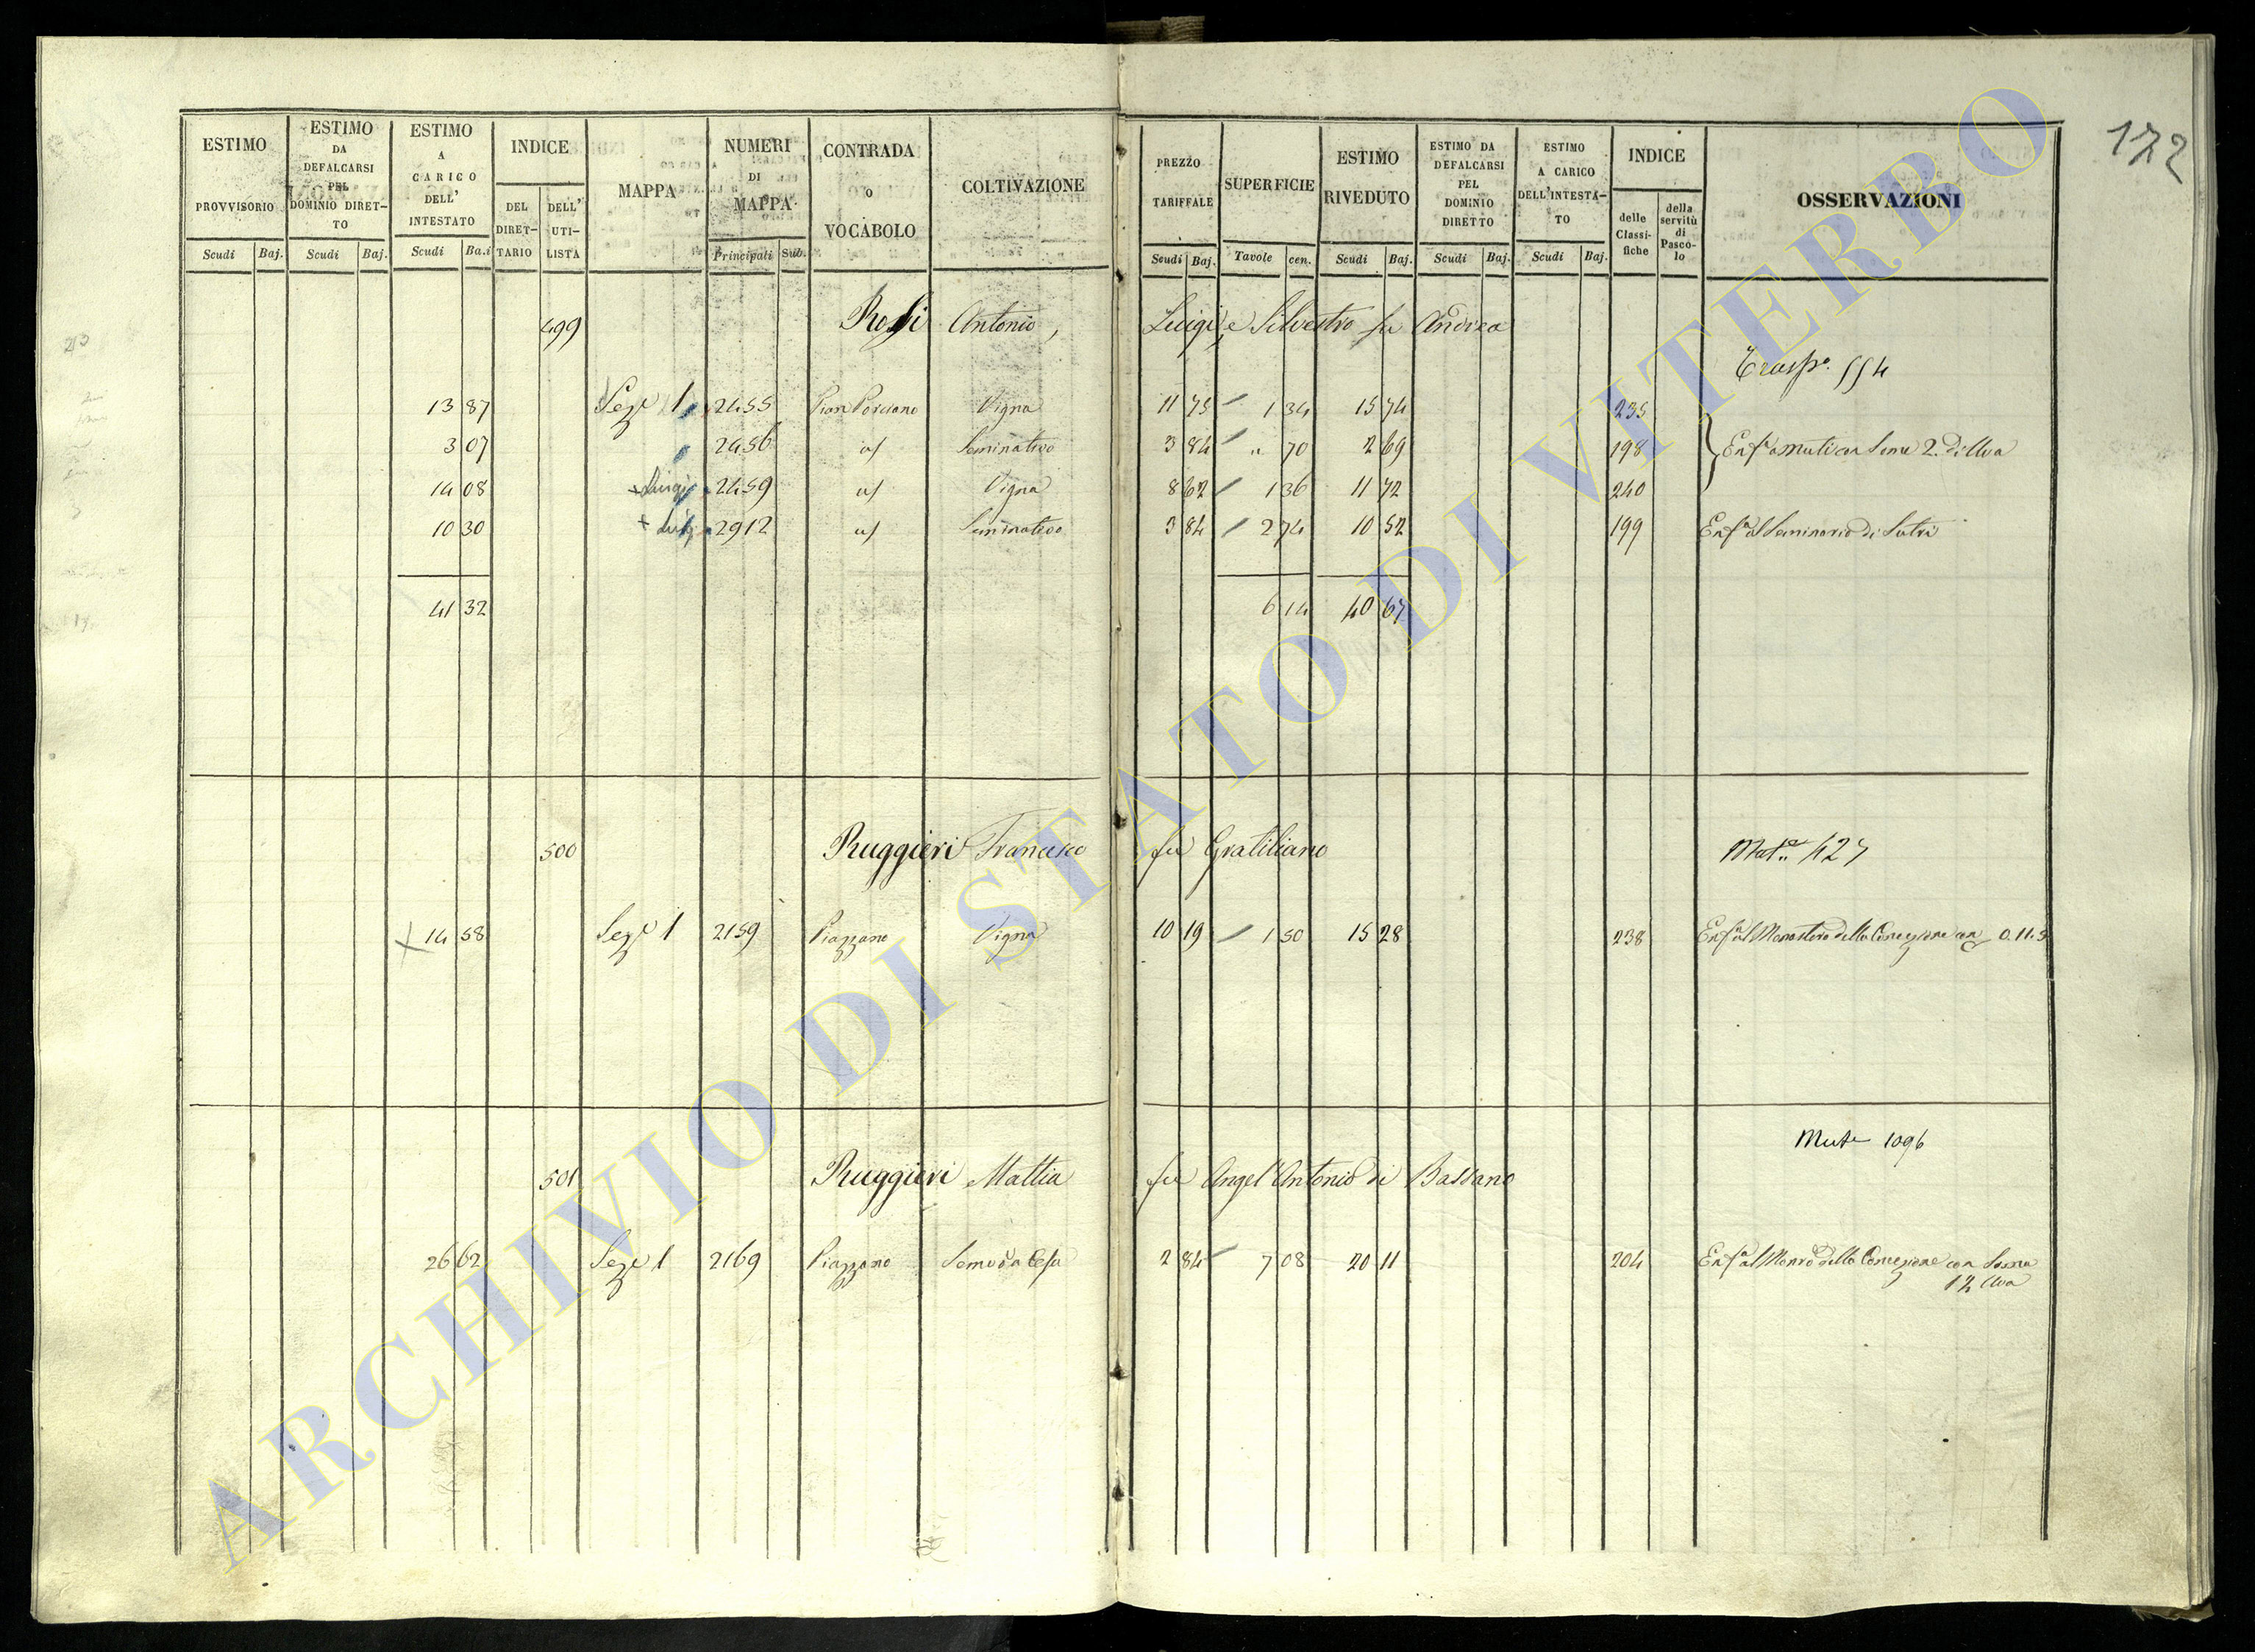 172
ESTIMO PROVVISORIO Scudi Baj.
ESTIMO DA DEFALCARSI PEL DOMINIO DIRETTO Scudi Baj.
ESTIMO A CARICO DELL' INTESTATO Scudi Ba.i
INDICE DEL DIRETTARIO DELL' UTILISTA
MAPPA
NUMERI DI MAPPA Principali Sub.
CONTRADA O VOCABOLO
COLTIVAZIONE
PREZZO TARIFFALE Scudi Baj.
SUPERFICIE Tavole cen.
ESTIMO RIVEDUTO Scudi Baj.
ESTIMO DA DEFALCARSI PEL DOMINIO DIRETTO Scudi Baj.
ESTIMO A CARICO DELL'INTESTATO Scudi Baj.
INDICE delle Classifiche della servitù di Pascolo
OSSERVAZIONI
499 Rossi Antonio, Luigi, e Silvestro fu Andrea
Trasp.o 554
13 87 Seze 1 2455 Pian Porciano Vigna 11 75 1 34 15 74 235
3 07 2456 id Seminativo 3 84 " 70 2 69 198
14 08 + Luigi 2459 id Vigna 8 62 1 36 11 72 240
10 30 + Luigi 2912 id Seminativo 3 84 2 74 10 52 199 Enfa al Seminario di Sutri
41 32 6 14 40 67
500 Ruggieri Francesco fu Gratiliano
14 58 Seze 1 2159 Piazzano Vigna 10 19 1 50 15 28 238 Enfa al Monastero della Concezione 0.11.5
Muta 1096
501 Ruggieri Mattia fu Angel'Antonio di Bassano
26 62 Seze 1 2169 Piazzano 2 84 7 08 20 11 204 Enfa al Monro della Concezione con Some
12 Uva
ARCHIVIO DI STATO DI VITERBO